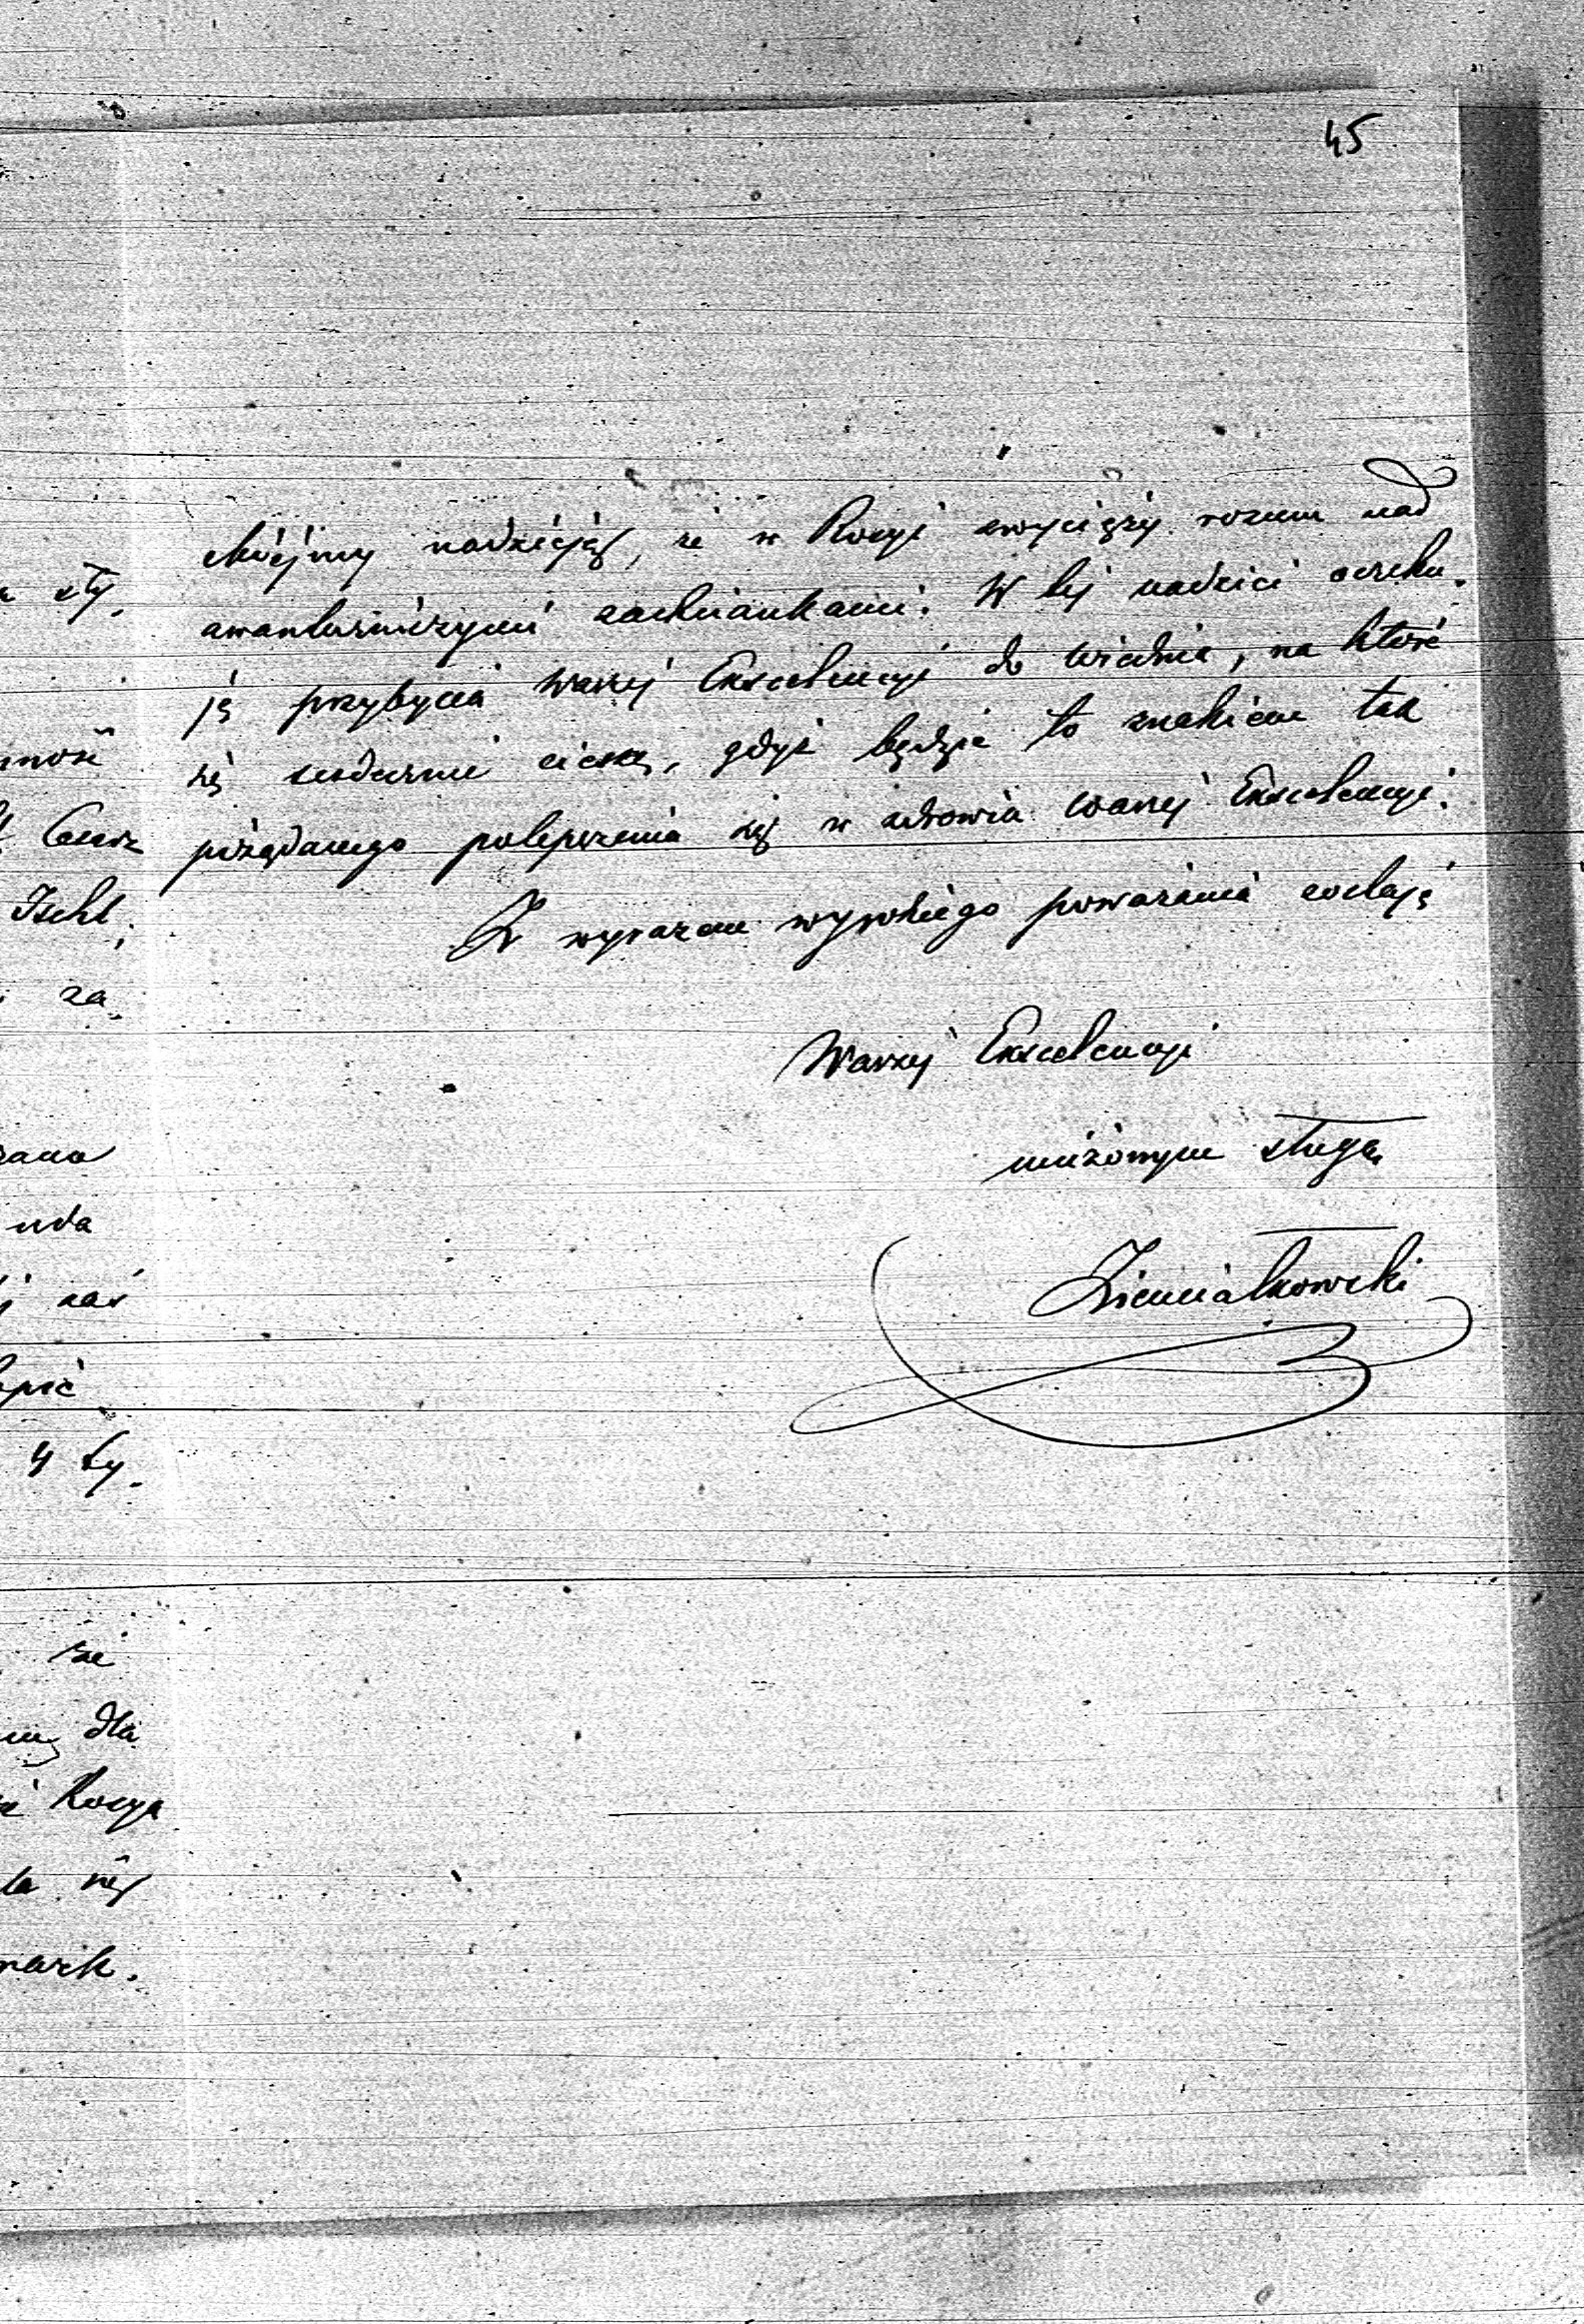 45
Miejmy nadzieję, że w Rosyi zwycięży rozum nad
awanturniczymi zachciankami. W tej nadziei oczeku-
ję przybycia Waszej Excelencyi do Wiednia, na które
się serdecznie cieszę, gdyż będzie to znakiem tak
pożądanego polepszenia się w zdrowiu Waszej Excelencyi.
Z wyrazem wysokiego poważania zostaję
Waszej Excelencyi
uniżonym sługą
Ziemiałkowski
sty-
Cesarz
Ischl,
za-
uda
zaś
4 ty-
że
dla
Rosya
się